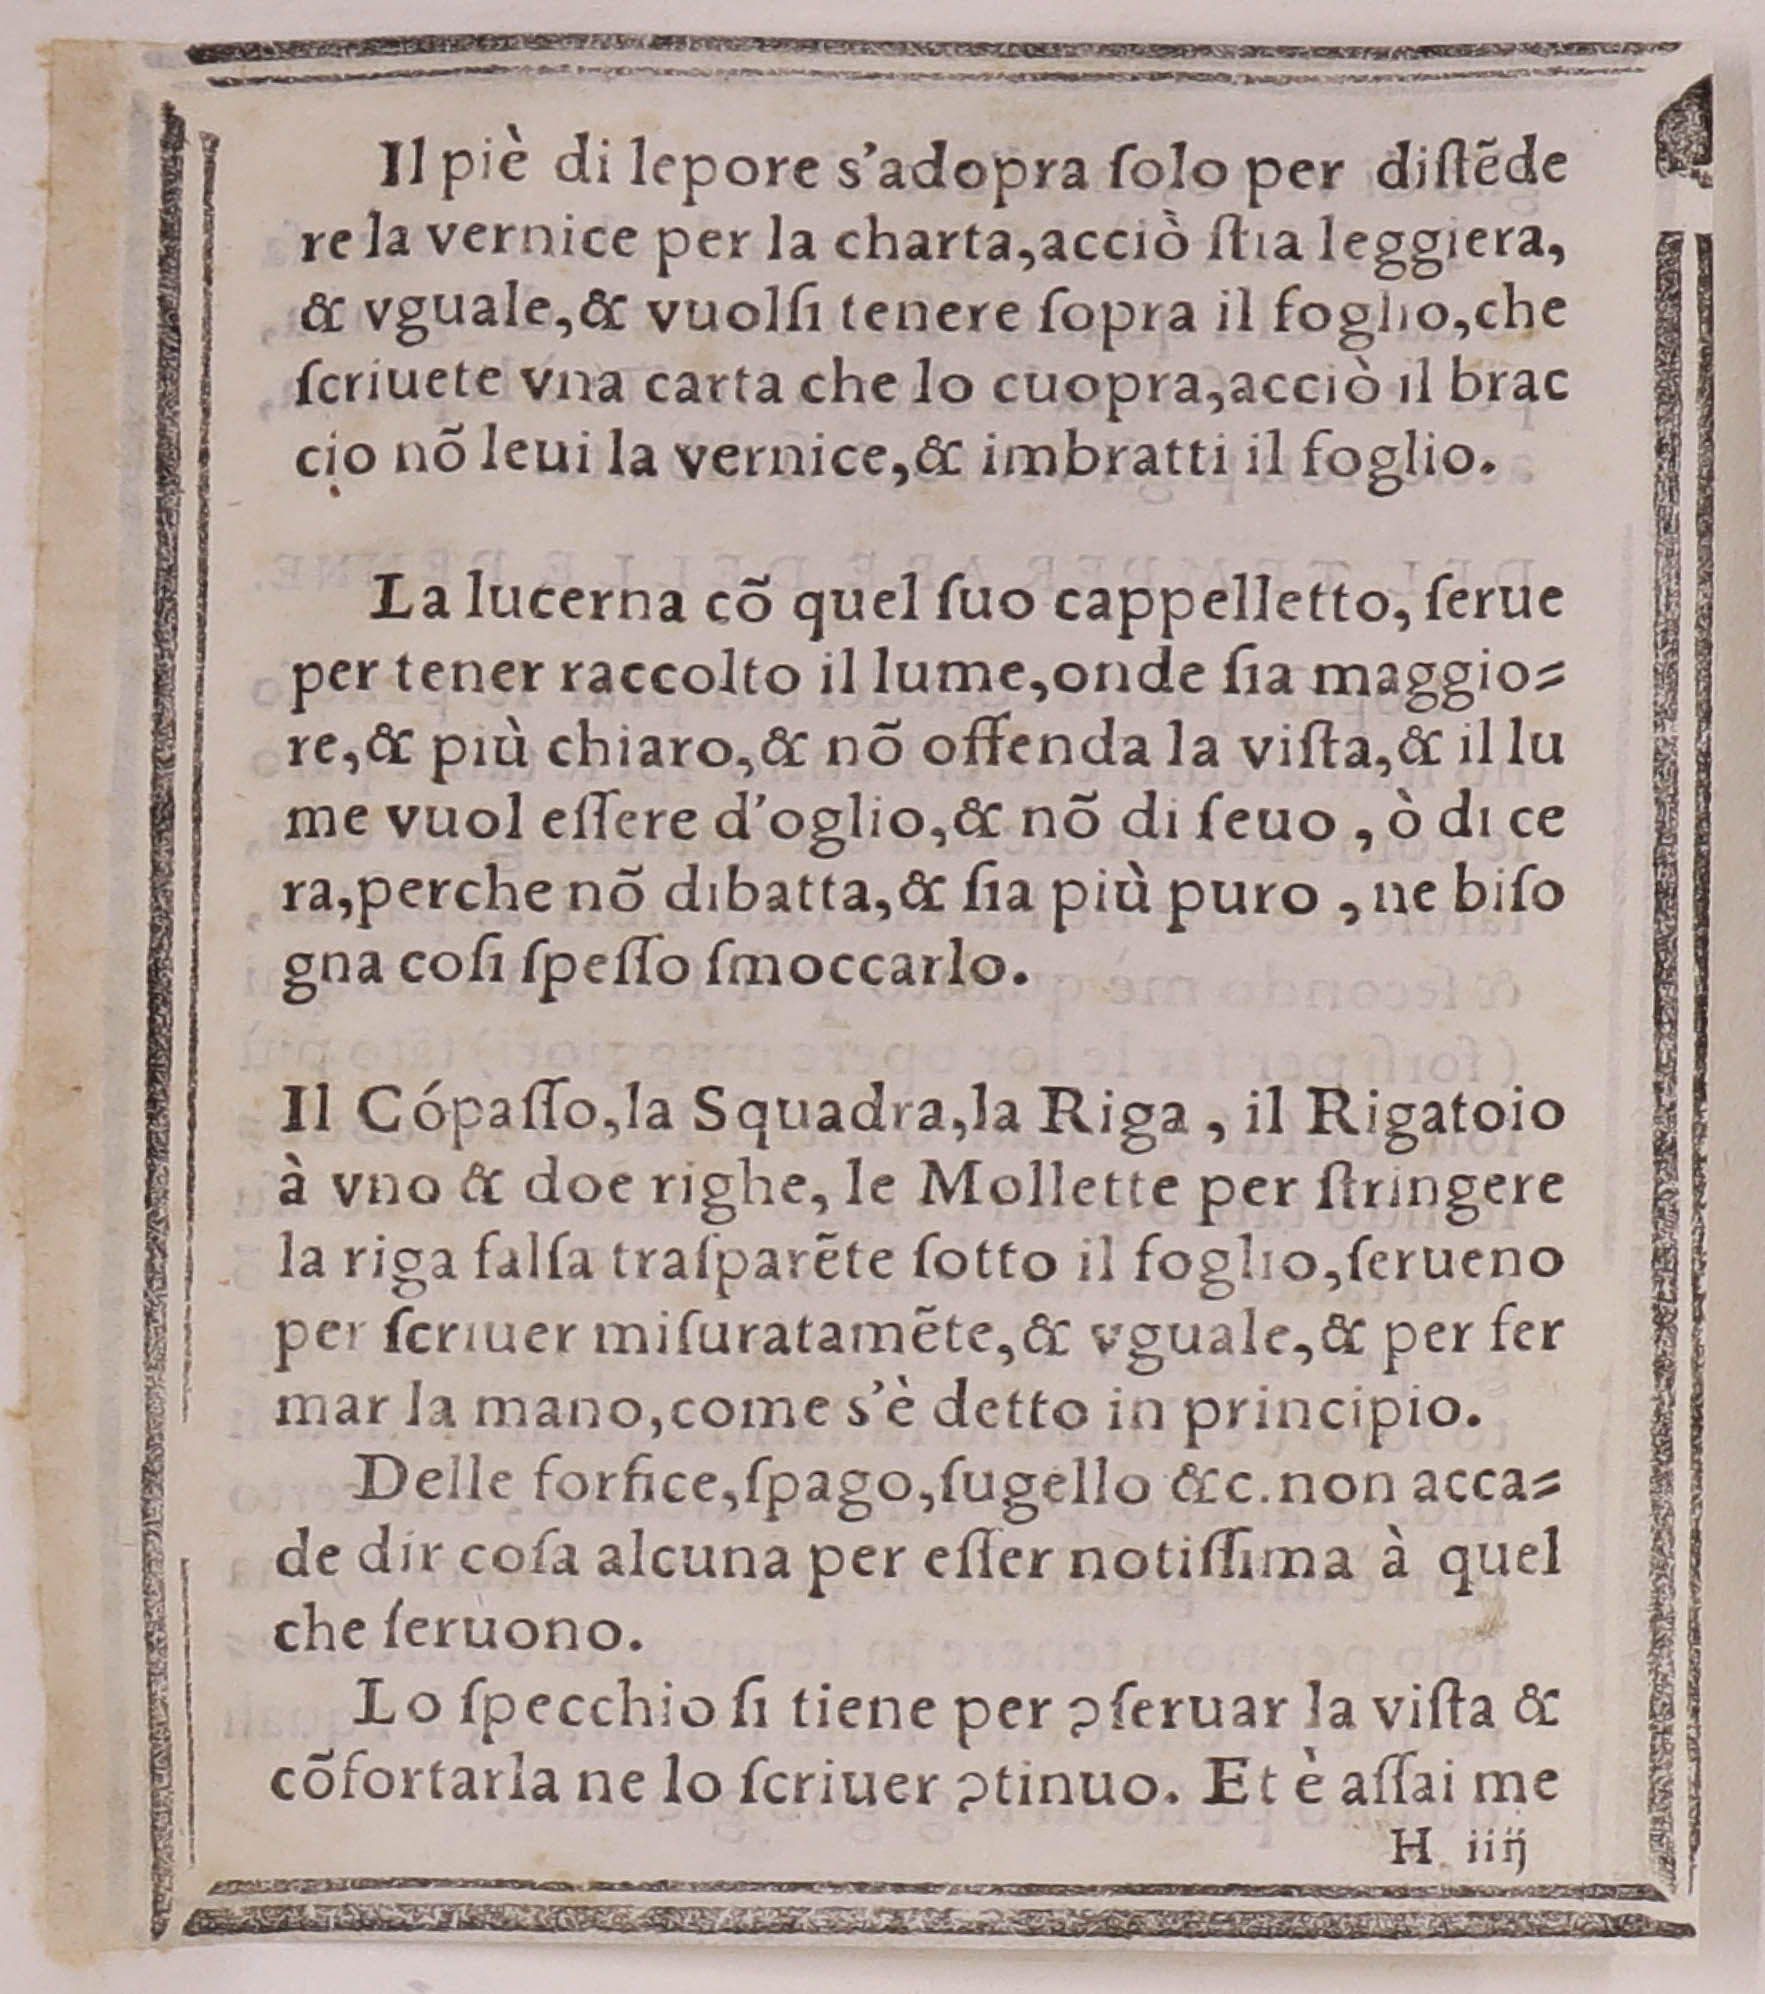 Il piè di lepore s'adopra ſolo per diſtẽde
re la vernice per la charta,acciò ſtia leggiera,
& vguale,& vuolſi tenere ſopra il foglio,che
ſcriuete vna carta che lo cuopra,acciò il brac
cio nõ leui la vernice,& imbratti il foglio.
La lucerna cõ quel ſuo cappelletto, ſerue
per tener raccolto il lume,onde ſia maggio⸗
re,& più chiaro,& nõ offenda la viſta,& il lu
me vuol eſſere d'oglio,& nõ di ſeuo , ò di ce
ra,perche nõ dibatta,& ſia più puro , ne biſo
gna coſi ſpeſſo ſmoccarlo.
Il Cópaſſo,la Squadra,la Riga , il Rigatoio
à vno & doe righe, le Mollette per ſtringere
la riga falſa traſparẽte ſotto il foglio,ſerueno
per ſcriuer miſuratamẽte,& vguale,& per fer
mar la mano,come s'è detto in principio.
Delle forfice,ſpago,ſugello &c.non acca⸗
de dir coſa alcuna per eſſer notiſſima à quel
che ſeruono.
Lo ſpecchio ſi tiene per ɔſeruar la viſta &
cõfortarla ne lo ſcriuer ɔtinuo. Et è aſſai me
H iiij